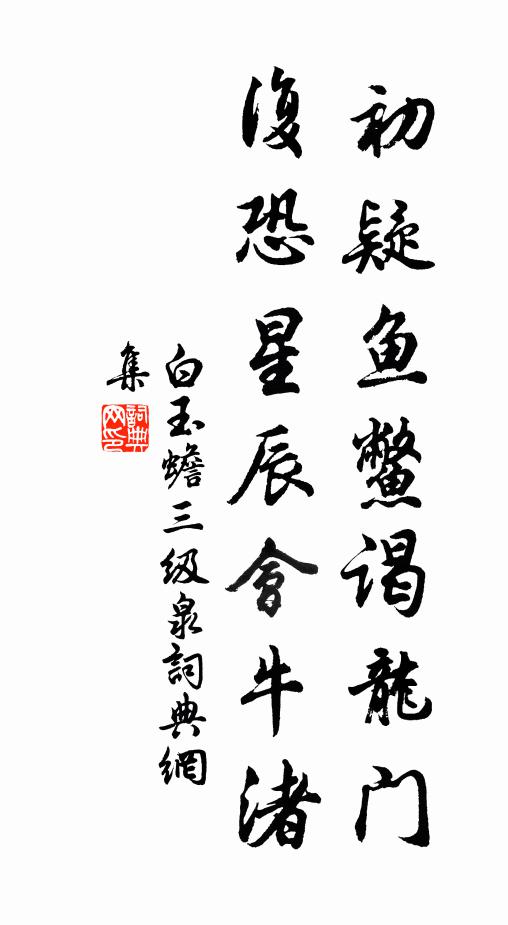 初疑鱼鳖谒龍门
復恐星辰會牛渚
白玉蟾三级泉詞典網
集
詞典网印